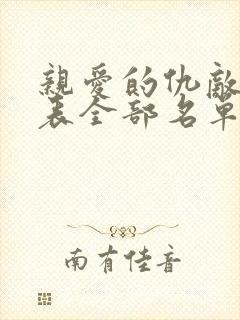 親愛的仇敵
表全部名單
南有佳音